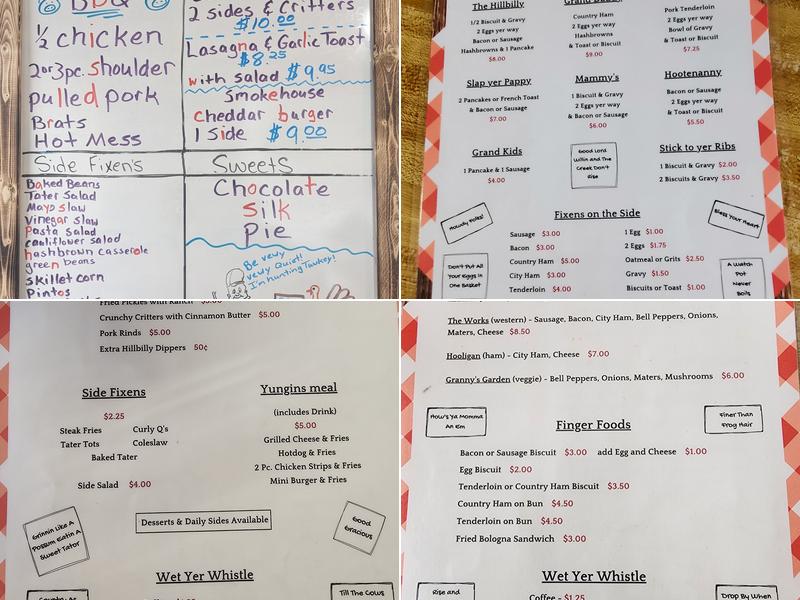 BBQ
½ chicken
2or3pc. shoulder
pulled pork
Brats
Hot Mess
2 sides & Critters
$10.00
Lasagna & Garlic Toast
$8.25
with salad $9.95
Smokehouse
cheddar burger
1 side $9.00
Side Fixen's
Baked Beans
Tater Salad
Mayo Slaw
Vinegar slaw
Pasta salad
cauliflower salad
hashbrown casserole
green beans
skillet corn
Pintos
Sweets
Chocolate
Silk
Pie
Be vewy
vewy Quiet!
I'm hunting Tawkey!
The Hillbilly
1/2 Biscuit & Gravy
2 Eggs yer way
Bacon or Sausage
Hashbrowns & 1 Pancake
$8.00
Country Ham
2 Eggs yer way
Hashbrowns
& Toast or Biscuit
$9.00
Pork Tenderloin
2 Eggs yer way
Bowl of Gravy
& Toast or Biscuit
$7.25
Slap yer Pappy
2 Pancakes or French Toast
& Bacon or Sausage
$7.00
Mammy's
1 Biscuit & Gravy
2 Eggs yer way
& Bacon or Sausage
$6.00
Hootenanny
Bacon or Sausage
2 Eggs yer way
& Toast or Biscuit
$5.50
Grand Kids
1 Pancake & 1 Sausage
$4.00
Good Lord
Willin and The
Creek Don't
Rise
Stick to yer Ribs
1 Biscuit & Gravy $2.00
2 Biscuits & Gravy $3.50
Howdy Folks!
Fixens on the Side
Bless Your Heart
Sausage $3.00
Bacon $3.00
Country Ham $5.00
City Ham $3.00
Tenderloin $4.00
1 Egg $1.00
2 Eggs $1.75
Oatmeal or Grits $2.50
Gravy $1.50
Biscuits or Toast $1.00
Don't Put All
Your Eggs in
One Basket
A Watch
Pot
Never
Boils
Fried Pickles with Ranch
Crunchy Critters with Cinnamon Butter $5.00
Pork Rinds $5.00
Extra Hillbilly Dippers 50¢
Side Fixens
$2.25
Steak Fries Curly Q's
Tater Tots Coleslaw
Baked Tater
Side Salad $4.00
Yungins meal
(includes Drink)
$5.00
Grilled Cheese & Fries
Hotdog & Fries
2 Pc. Chicken Strips & Fries
Mini Burger & Fries
Grinnin Like A
Possum Eatin A
Sweet Tator
Desserts & Daily Sides Available
Good
Gracious
Wet Yer Whistle
Till The Cows
The Works (western) - Sausage, Bacon, City Ham, Bell Peppers, Onions,
Maters, Cheese $8.50
Hooligan (ham) - City Ham, Cheese $7.00
Granny's Garden (veggie) - Bell Peppers, Onions, Maters, Mushrooms $6.00
How's Ya Momma
An Em
Finger Foods
Finer Than
Frog Hair
Bacon or Sausage Biscuit $3.00 add Egg and Cheese $1.00
Egg Biscuit $2.00
Tenderloin or Country Ham Biscuit $3.50
Country Ham on Bun $4.50
Tenderloin on Bun $4.50
Fried Bologna Sandwich $3.00
Rise and
Wet Yer Whistle
Drop By When
Coffee - $1.25